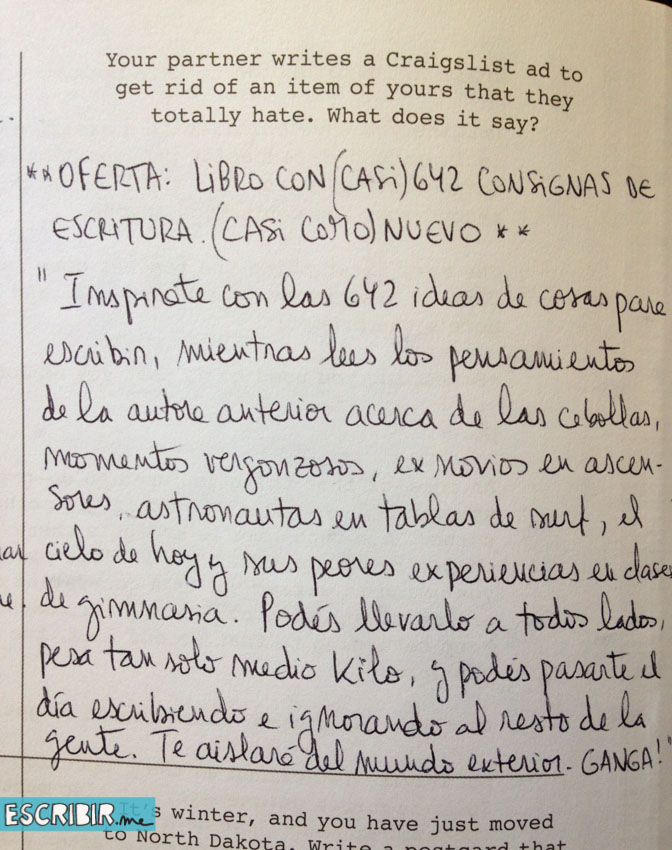 Your partner writes a Craigslist ad to
get rid of an item of yours that they
totally hate. What does it say?
**OFERTA: LIBRO CON (CASI) 642 CONSIGNAS DE
ESCRITURA. (CASI COMO) NUEVO **
"Inspirate con las 642 ideas de cosas para
escribir, mientras lees los pensamientos
de la autora anterior acerca de las cebollas,
momentos vergonzosos, ex novios en ascen-
sores, astronautas en tablas de surf, el
cielo de hoy y sus peores experiencias en clases
de gimnasia. Podés llevarlo a todos lados,
pesa tan solo medio kilo, y podés pasarte el
día escribiendo e ignorando al resto de la
gente. Te aislará del mundo exterior. GANGA!"
ESCRIBIR.me
It's winter, and you have just moved
to North Dakota. Write a postcard that